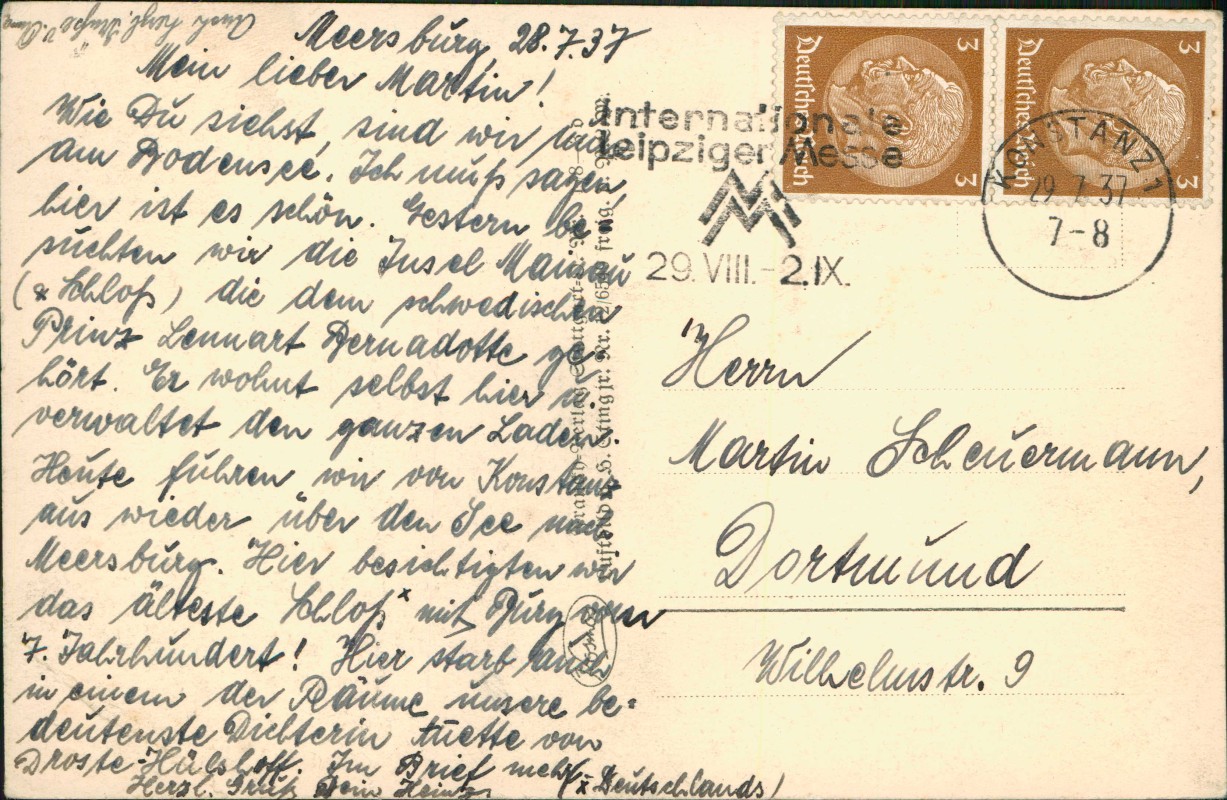 Meersburg, 28.7.37
Mein lieber Martin!
Wie Du siehst, sind wir
am Bodensee. Ich muß sagen
hier ist es schön. Gestern be-
suchten wir die Insel Mainau
(* Schloß) die dem schwedischen
Prinz Lennart Bernadotte ge
hört. Er wohnt selbst hier u.
verwaltet den ganzen Laden.
Heute fuhren wir von Konstanz
aus wieder über den See nach
Meersburg. Hier besichtigten wir
das älteste Schloß x mit Burg vom
7. Jahrhundert! Hier starb auch
in einem der Räume unsere be=
deutenste Dichterin Anette von
Droste-Hülshoff. Im Brief mehr
(x Deutschlands)
Herzl. Gruß Dein Heinz
Auch herzl.
Internationale
Leipziger Messe
MM
29. VIII. - 2. IX.
Deutsches Reich
3
3
Deutsches Reich
3
3
KONSTANZ 1
29.7.37
7-8
Herrn
Martin Scheuermann,
Dortmund
Wilhelmstr. 9